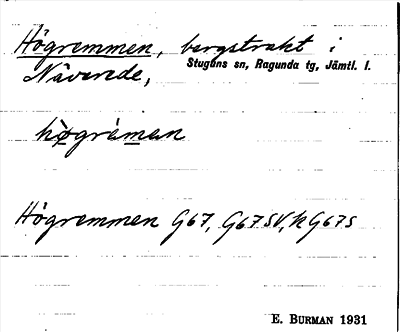 Högremmen, bergstrakt i
Stuguns sn, Ragunda tg, Jämtl. l.
Näverede,
hògréman
Högremmen G67, G67SV, k G67S
E. BURMAN 1931